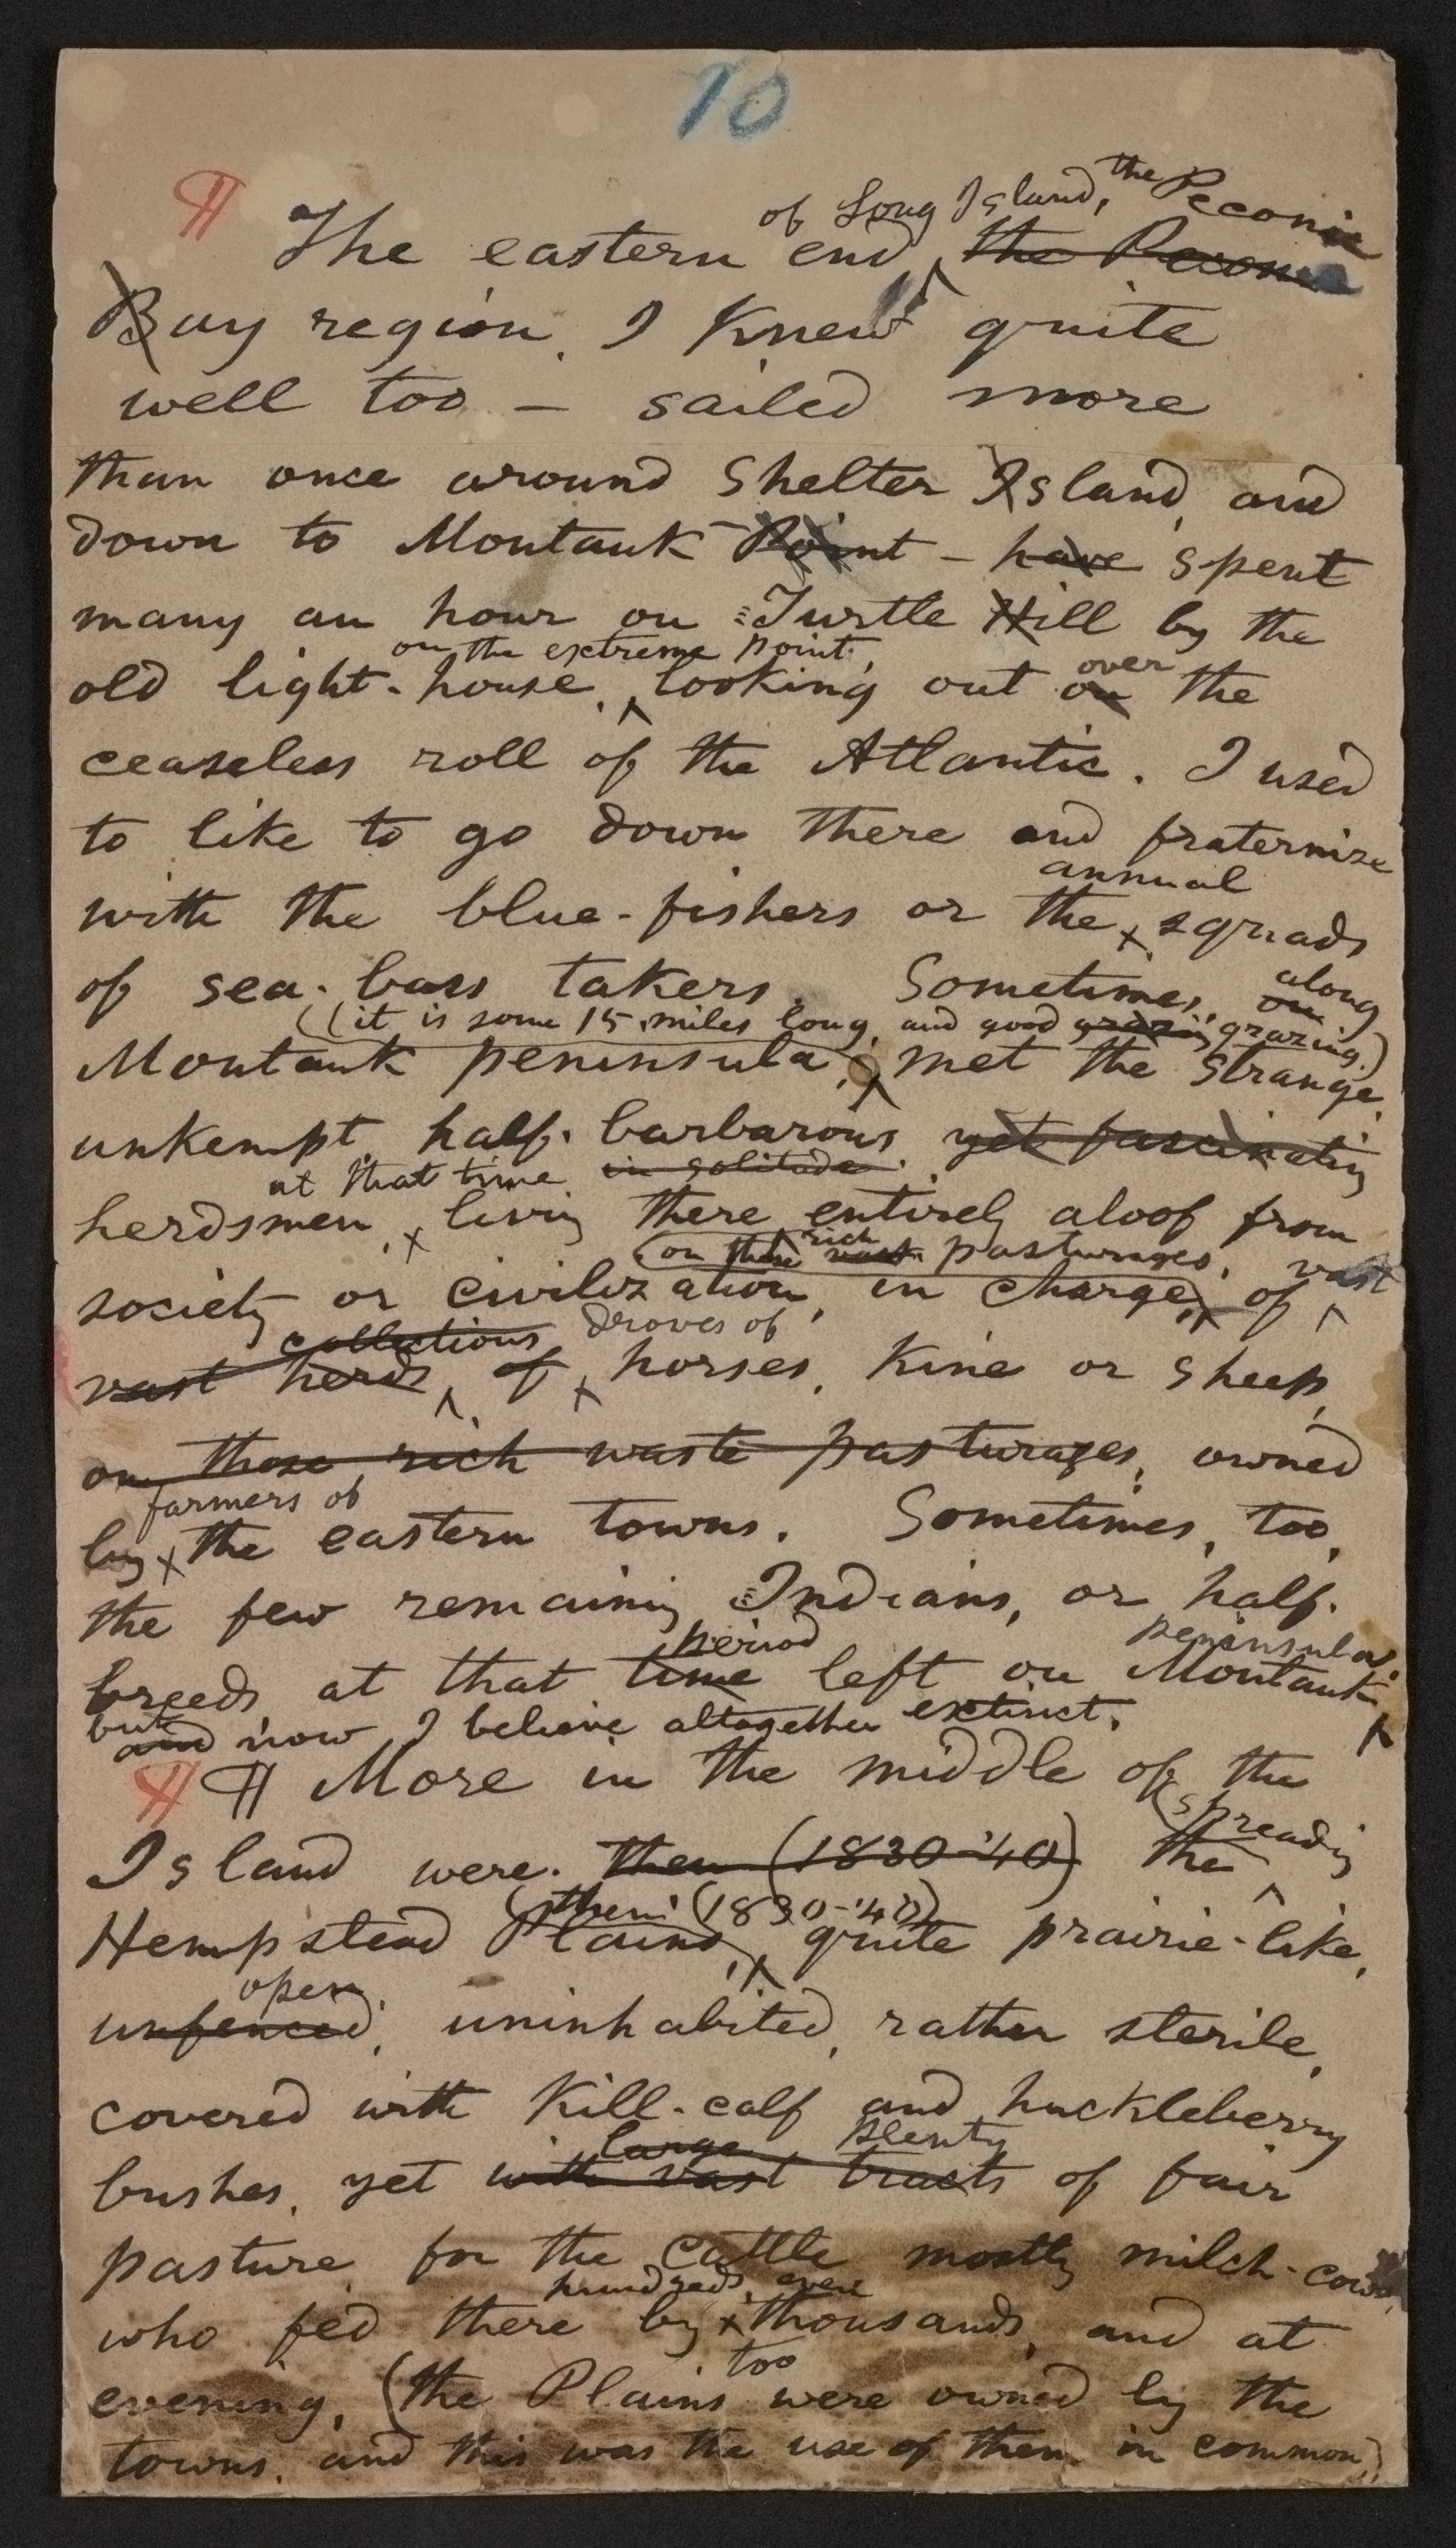 10
¶
of Long Island, the Peconic
The eastern end, the Peconic
Bay region, I knew quite
well too — sailed more
than once around Shelter Island, and
down to Montauk Point — have spent
many an hour on Turtle Hill by the
on the extreme point,
old light-house, looking out on the
over
ceaseless roll of the Atlantic. I used
to like to go down there and fraternize
annual
with the blue-fishers or the squads
of sea-bass takers. Sometimes, on
along
(it is some 15 miles long, and good grazing grazing.)
Montauk peninsula, met the strange,
unkempt, half-barbarous, yet fascinating
at that time in solitude
herdsmen, living there entirely aloof from
rich
(on those vast pasturages,
society or civilization, in charge, of vast
collections droves of
vast herds, of horses, kine or sheep,
on those rich waste pasturages, owned
farmers of
by the eastern towns. Sometimes, too,
the few remaining Indians, or half-
period peninsula,
breeds at that time left on Montauk
but
and now I believe altogether extinct.
¶ ¶ More in the middle of the
(spreading
Island were then (1830-'40) the
(then (1830-'40)
Hempstead Plains, quite prairie-like,
open,
unfenced, uninhabited, rather sterile,
covered with kill-calf and huckleberry
large plenty
bushes, yet with vast tracts of fair
pasture for the cattle mostly milch-cows,
hundreds, even
who fed there by thousands, and at
too
evening, (the Plains were owned by the
towns, and this was the use of them in common)